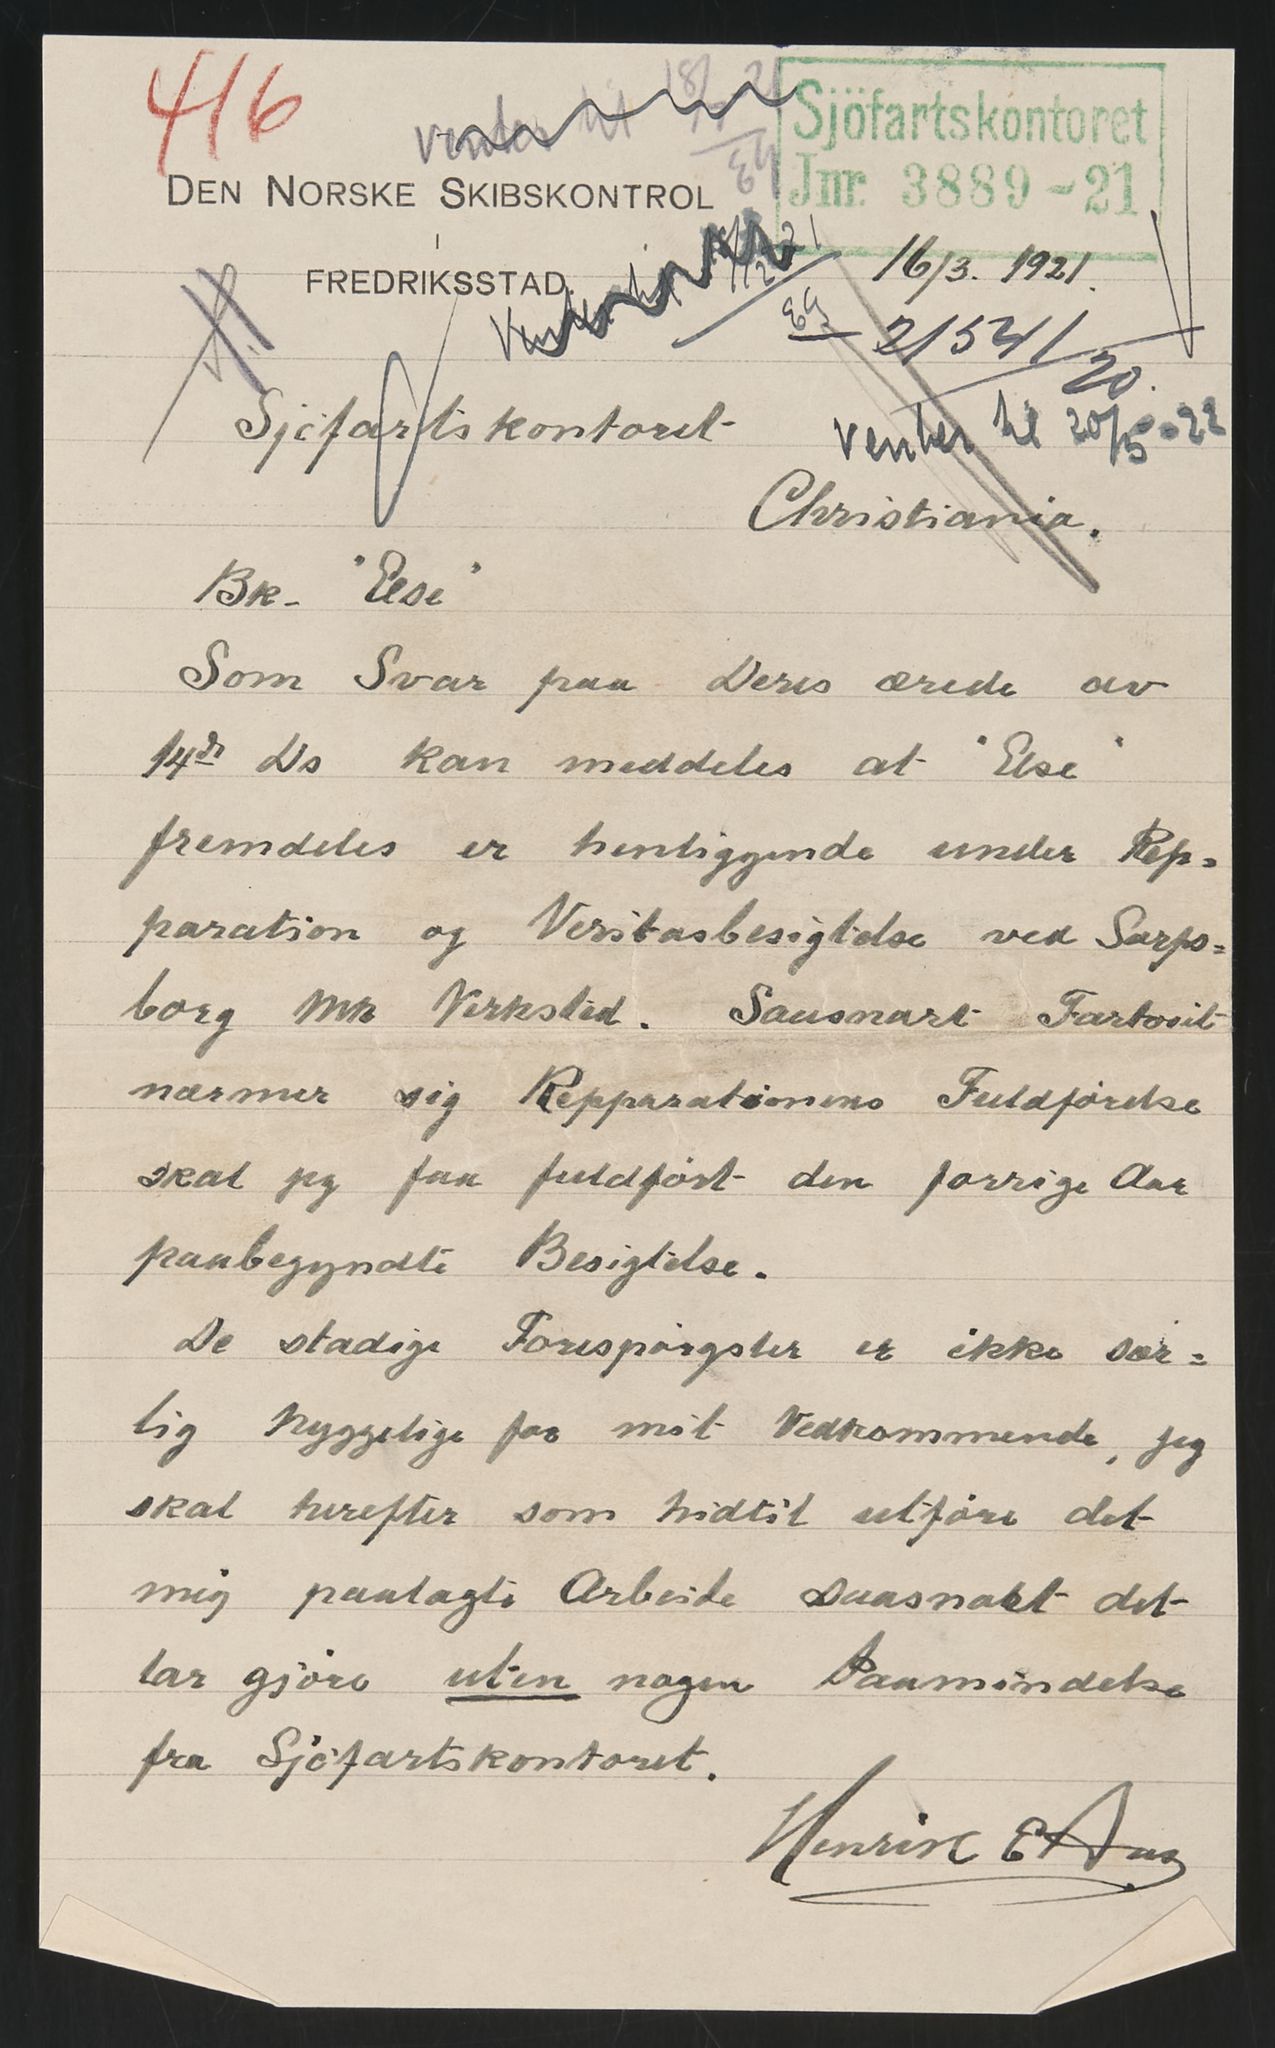 416
venter til 18/7 21
Eg
Sjöfartskontoret
Jnr. 3889-21
DEN NORSKE SKIBSKONTROL
I
FREDRIKSSTAD.
16/3. 1921.
Venter til
Eg
21541/20.
venter til 20/5-22
Sjöfartskontoret
Christiania.
Bk. "Else"
Som Svar paa Deres ærede av
14de Ds kan meddeles at "Else"
fremdeles er henliggende under Rep=
paration og Veritasbesigtelse ved Sarps=
borg Mk Verksted. Saasnart Fartöiet
nærmer sig Repparationens Fuldförelse
skal jeg faa fuldfört den forrige Aar
paabegyndte Besigtelse.
De stadige Forespörgsler er ikke sær=
lig hyggelige for mit Vedkommende, jeg
skal herefter som hidtil utföre det
mig paalagte Arbeide saasnart det
lar gjöre uten nogen Paamindelse
fra Sjöfartskontoret.
Henrik E